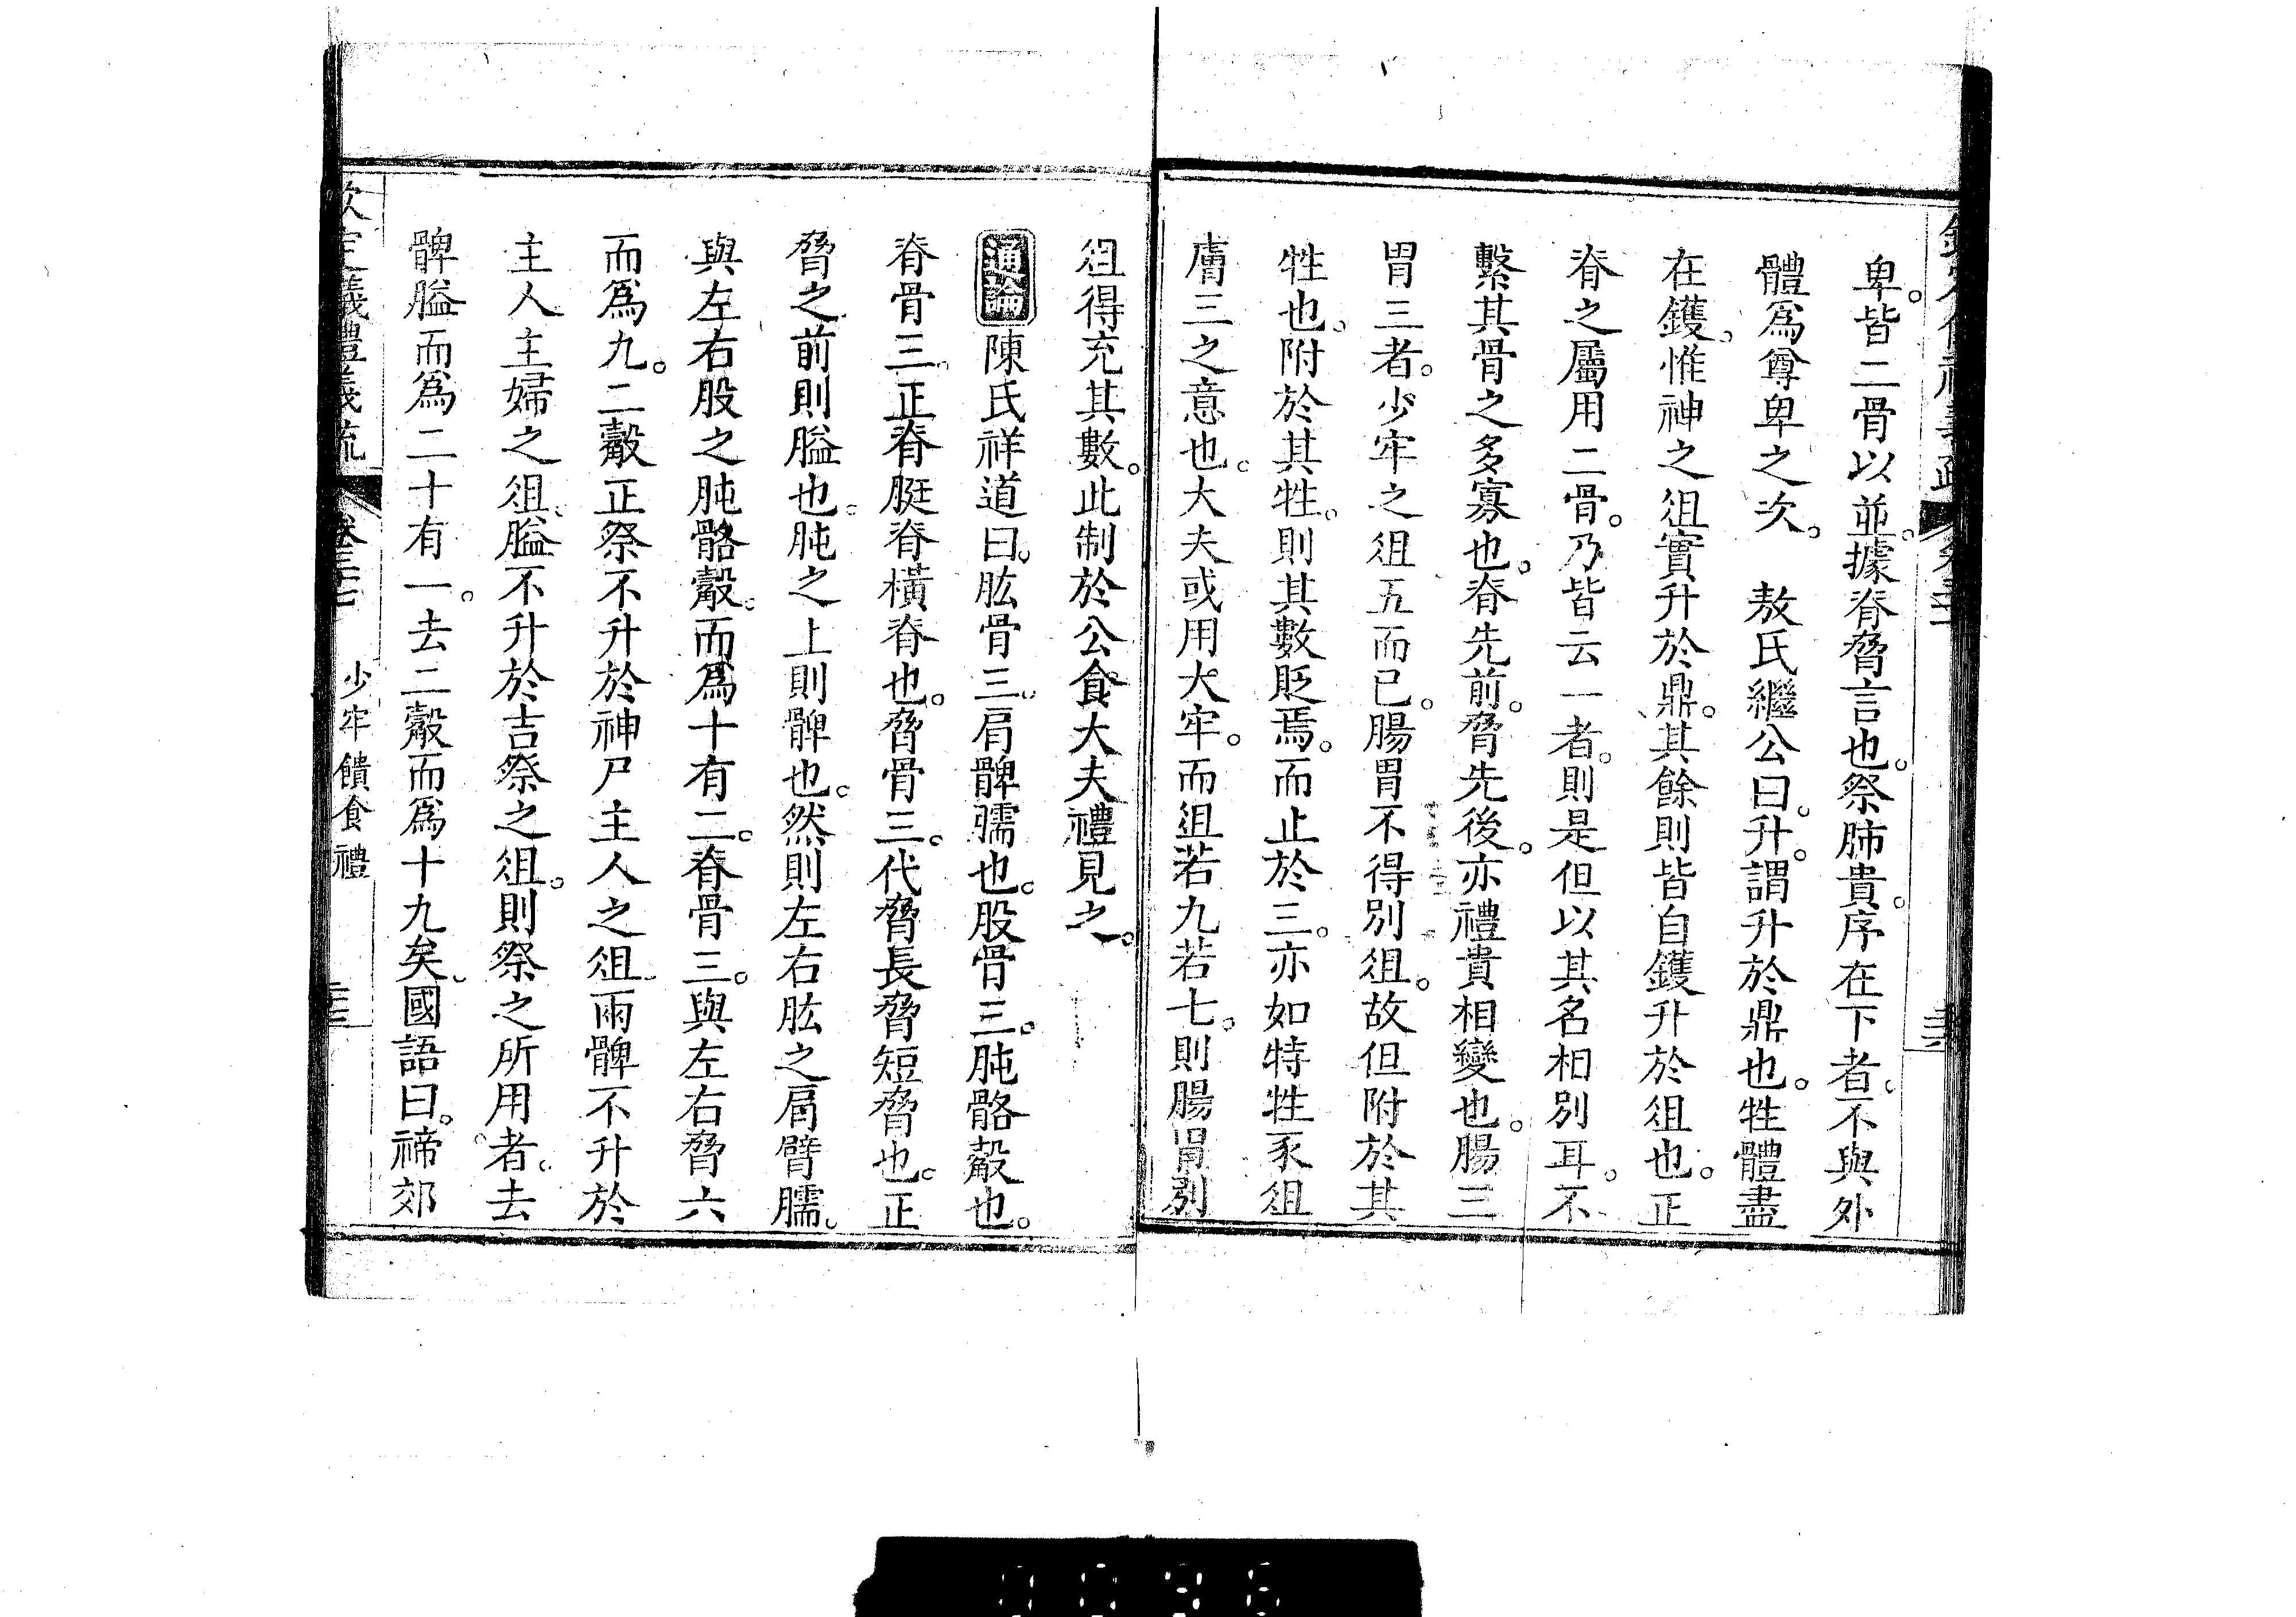 卑。皆二骨以並。據脊脅言也。祭肺貴。序在下者。不與外
體爲尊卑之次。　敖氏繼公曰。升。謂升於鼎也。牲體盡
在鑊。惟神之俎實升於鼎。其餘則皆自鑊升於俎也。正
脊之屬用二骨。乃皆云一者。則是但以其名相別耳。不
繫其骨之多寡也。脊先前。脅先後。亦禮貴相變也。腸三
胃三者。少牢之俎五而已。腸胃不得別俎。故但附於其
牲也。附於其牲。則其數貶焉。而止於三。亦如特牲豕俎
膚三之意也。大夫或用大牢。而俎若九若七。則腸胃別
俎得充其數。此制於公食大夫禮見之。
通論陳氏祥道曰。肱骨三。肩髀臑也。股骨三。肫骼觳也。
脊骨三。正脊脡脊橫脊也。脅骨三。代脅長脅短脅也。正
脅之前則膉也。肫之上則髀也。然則左右肱之肩臂臑。
與左右股之肫骼觳。而爲十有二。脊骨三。與左右脅六
而爲九。二觳正祭不升於神尸主人之俎。兩髀不升於
主人主婦之俎。膉不升於吉祭之俎。則祭之所用者。去
髀膉而爲二十有一。去二觳而爲十九矣。國語曰。禘郊
欽定儀禮義疏　卷三十七　少牢饋食禮